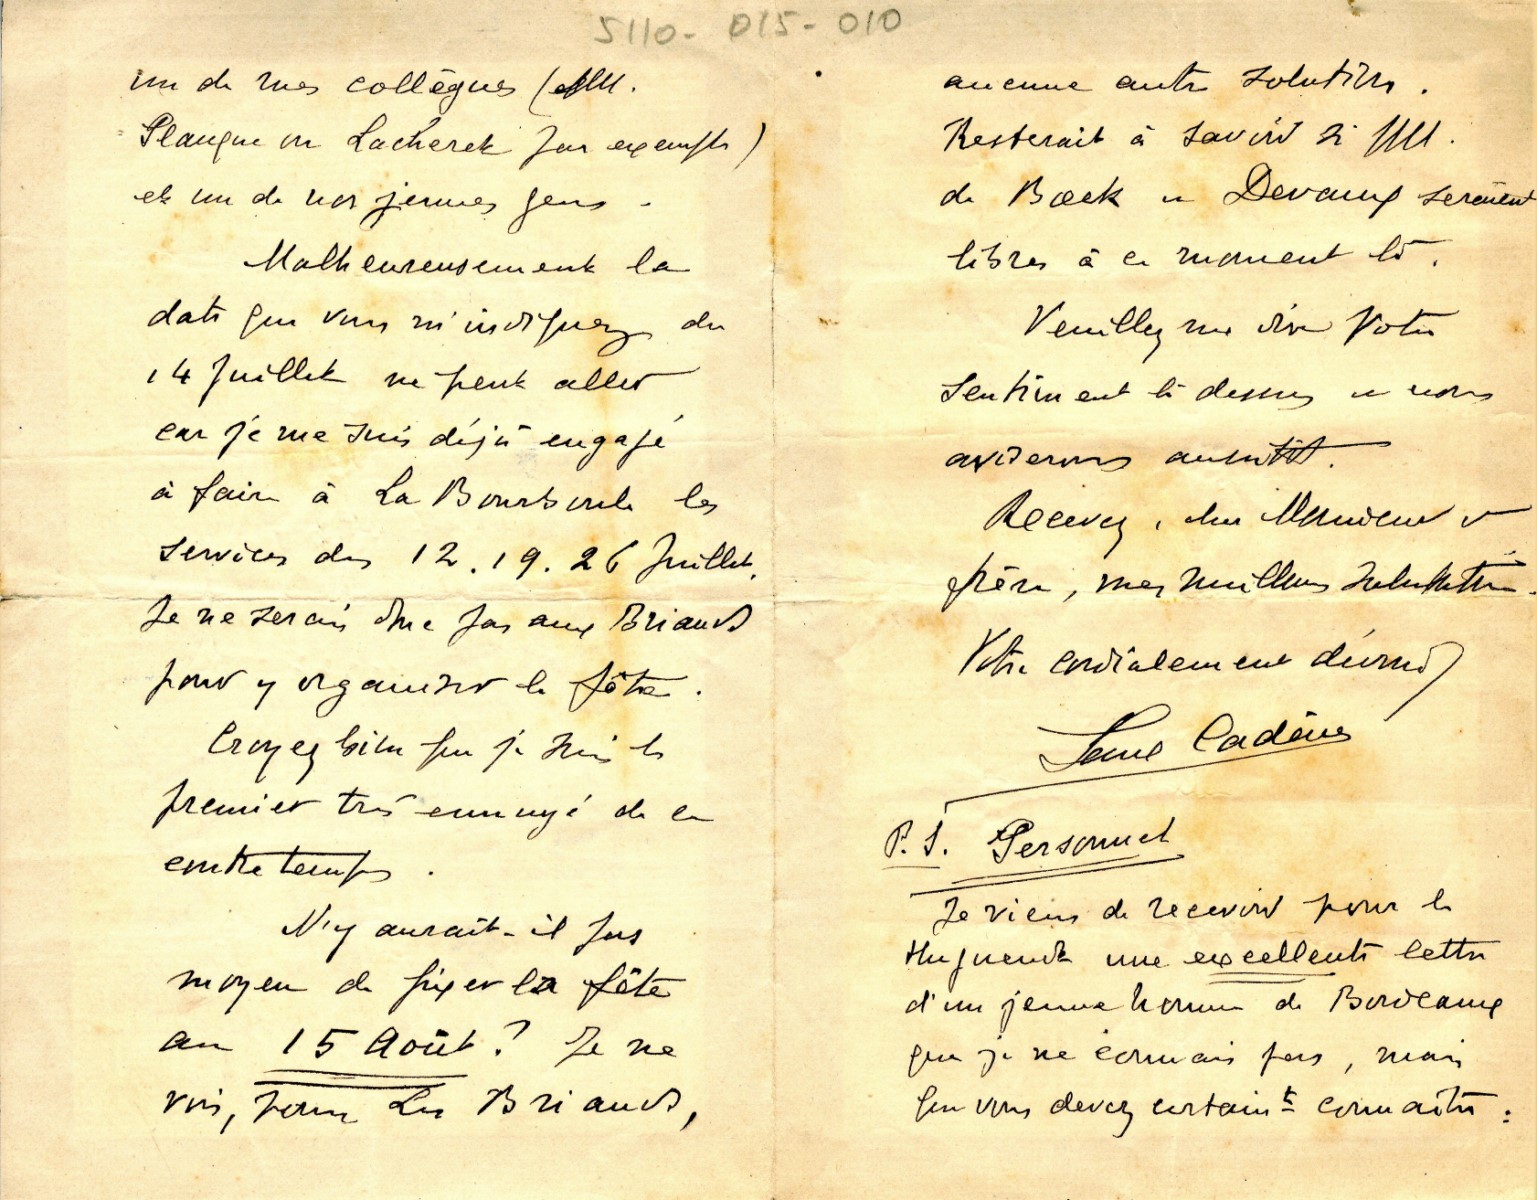 5110-015-010
un de mes collègues (MM.
Plauque ou Lacheret par exemple)
et un de nos jeunes gens.
Malheureusement la
date que vous m'indiquez du
14 Juillet ne peut aller
car je me suis déjà engagé
à faire à La Bourboule les
services des 12. 19. 26 Juillet.
Je ne serais donc pas aux Briands
pour y organiser la fête.
Croyez bien que je suis le
premier très ennuyé de ce
contretemps.
N'y aurait-il pas
moyen de fixer la fête
au 15 Août? Je ne
vois, pour Les Briands,
aucune autre solution.
Resterait à savoir si MM.
de Bœck et Devaux seraient
libres à ce moment là.
Veuillez me dire votre
sentiment là dessus et nous
aviserons aussitôt.
Recevez, cher Monsieur et
frère, mes meilleures salutations.
Votre cordialement dévoué
Cadène
P. S. Personnel
Je viens de recevoir pour le
Huguenot une excellente lettre
d'un jeune homme de Bordeaux
que je ne connais pas, mais
que vous devez certaint connaître: